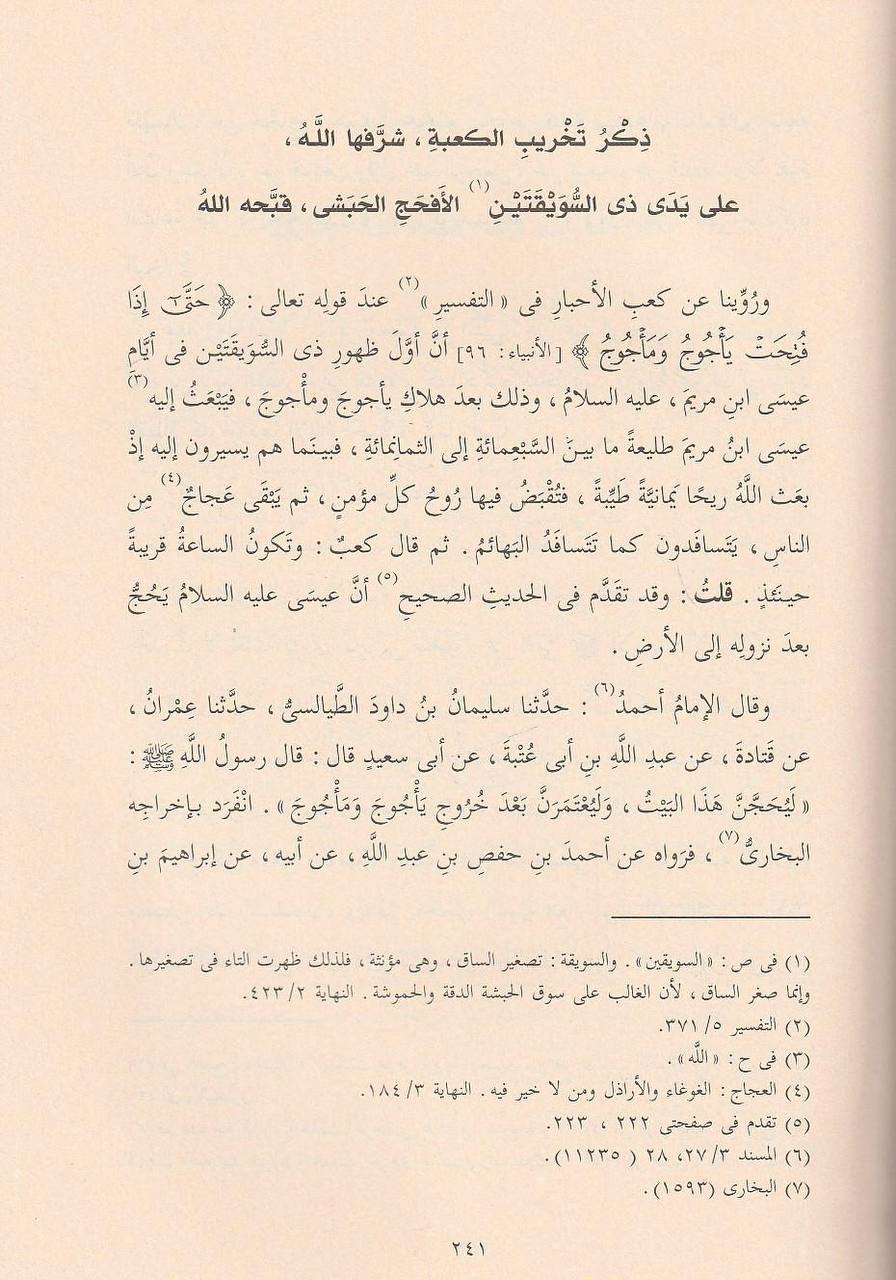 ذِكْرُ تَخْريبِ الكعبةِ ، شرَّفها اللَّهُ ،
على يَدَى ذى السُّوَيْقَتَيْنِ(١) الأَفحَجِ الحَبَشى ، قبَّحه اللهُ
ورُوِّينا عن كعبِ الأحبارِ فى « التفسيرِ »(٢) عندَ قولِه تعالى : ﴿ حَتَّىٰٓ إِذَا
فُتِحَتْ يَأْجُوجُ وَمَأْجُوجُ ﴾ [ الأنبياء : ٩٦ ] أنَّ أوَّلَ ظهورِ ذى السُّوَيقَتَيْنِ فى أيَّامِ
عيسَى ابنِ مريمَ ، عليه السلامُ ، وذلك بعدَ هلاكِ يأجوجَ ومأْجوجَ ، فيَبْعَثُ إليه(٣)
عيسَى ابنُ مريمَ طليعةً ما بينَ السَّبْعِمائةِ إلى الثمانِمائةِ ، فبينَما هم يسيرون إليه إذْ
بعَث اللَّهُ ريحًا يَمانيَّةً طَيِّبةً ، فتُقْبَضُ فيها رُوحُ كلِّ مؤمنٍ ، ثم يَبْقَى عَجاجٌ(٤) مِن
الناسِ ، يَتَسافَدون كما تَتَسافَدُ البَهائمُ . ثم قال كعبٌ : وتَكونُ الساعةُ قريبةً
حينَئذٍ . قلتُ : وقد تقَدَّم فى الحديثِ الصحيحِ(٥) أنَّ عيسَى عليه السلامُ يَحُجُّ
بعدَ نزولِه إلى الأرضِ .
وقال الإمامُ أحمدُ(٦) : حدَّثنا سليمانُ بنُ داودَ الطَّيالسىُّ ، حدَّثنا عِمْرانُ ،
عن قَتادةَ ، عن عبدِ اللَّهِ بنِ أبى عُتْبةَ ، عن أبى سعيدٍ قال : قال رسولُ اللَّهِ ﷺ :
« لَيُحَجَّنَّ هَذَا البَيْتُ ، وَلَيُعْتَمَرَنَّ بَعْدَ خُرُوجِ يَأْجُوجَ وَمَأْجُوجَ » . انْفَرَد بإخراجِه
البخارىُّ(٧) ، فرَواه عن أحمدَ بنِ حفصِ بنِ عبدِ اللَّهِ ، عن أبيه ، عن إبراهيمَ بنِ
(١) فى ص : « السويقين » . والسويقة : تصغير الساق ، وهى مؤنثة ، فلذلك ظهرت التاء فى تصغيرها .
وإنما صغر الساق ، لأن الغالب على سوق الحبشة الدقة والحموشة . النهاية ٢/ ٤٢٣.
(٢) التفسير ٥/ ٣٧١.
(٣) فى ح : « اللَّه » .
(٤) العجاج : الغوغاء والأراذل ومن لا خير فيه . النهاية ٣/ ١٨٤.
(٥) تقدم فى صفحتى ٢٢٢ ، ٢٢٣.
(٦) المسند ٣/ ٢٧، ٢٨ ( ١١٢٣٥).
(٧) البخارى (١٥٩٣).
٢٤١